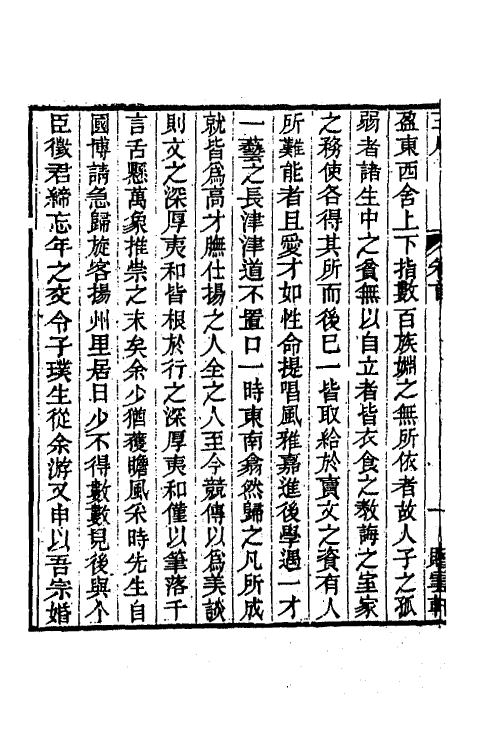 盈東西舍上下指數百族姻之無所依者故人子之孤
弱者諸生中之貧無以自立者皆衣食之教誨之室家
之務使各得其所而後已一皆取給於賣文之資有人
所難能者且愛才如性命提唱風雅嘉進後學遇一才
一藝之長津津道不置口一時東南翕然歸之凡所成
就皆爲高才膴仕揚之人全之人至今競傳以爲美談
則文之深厚夷和皆根於行之深厚夷和僅以筆落千
言舌懸萬象推崇之末矣余少猶獲瞻風采時先生自
國博請急歸旋客揚州里居日少不得數數見後與个
臣徵君締忘年之交令子璞生從余游又申以吾宗婚